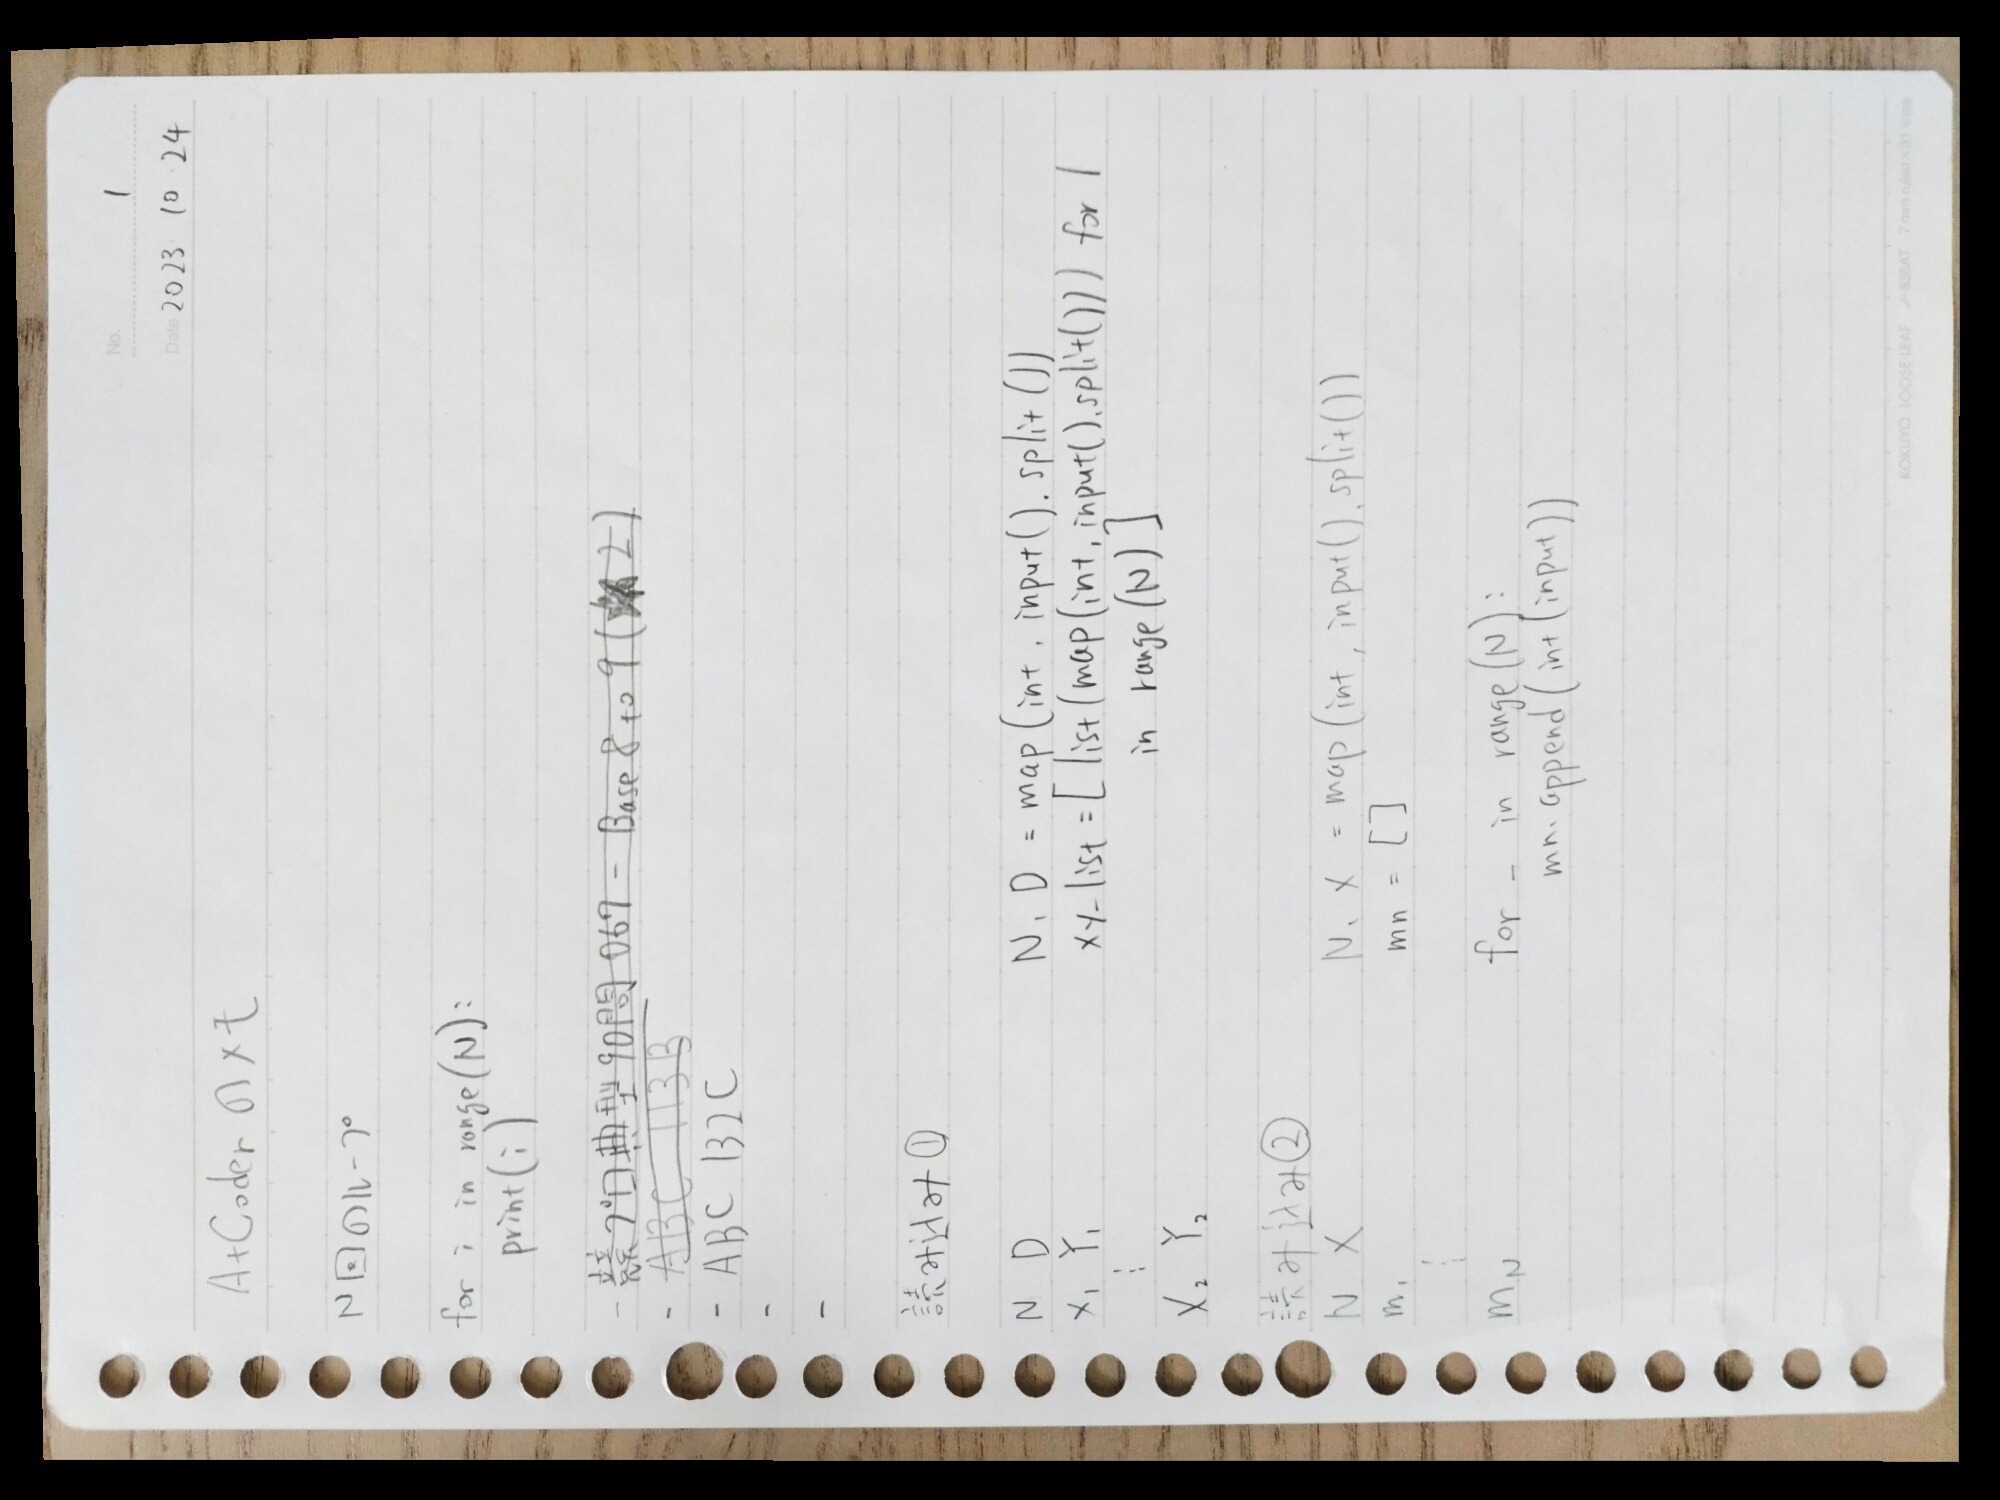 No. 1
Date 2023 10 24
AtCoder のメモ
N回のループ
for i in range(N):
print(i)
- 競プロ典型90問 067 - Base 8 to 9 (★2)
- ABC 113B
- ABC 132C
-
-
読み込み①
N D N, D = map(int, input().split())
X₁ Y₁ xy_list = [list(map(int, input().split())) for l
⋮ in range(N)]
X₂ Y₂
読み込み②
N X N, X = map(int, input().split())
m₁ mn = []
⋮
m_N for _ in range(N):
mn.append(int(input))
KOKUYO LOOSE-LEAF ノ-836AT 7 mm ruled × 31 lines